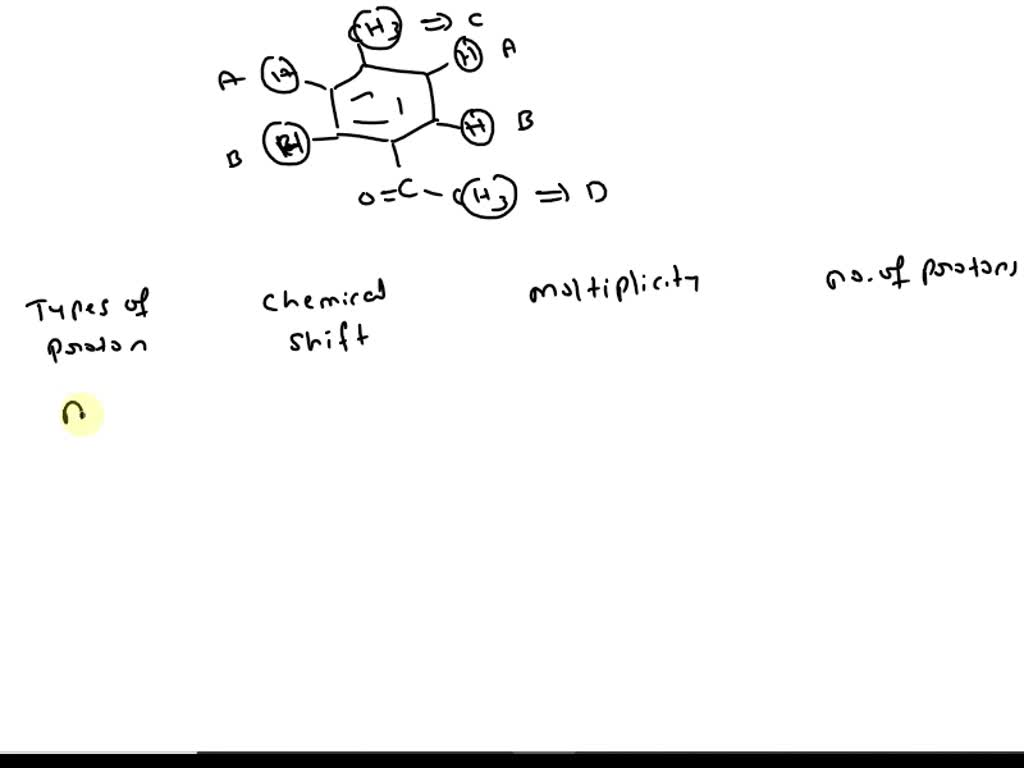 CH3 ⇒ C
A H H A
B H H B
O=C-CH3 ⇒ D
Types of proton
Chemical shift
multiplicity
no. of protons